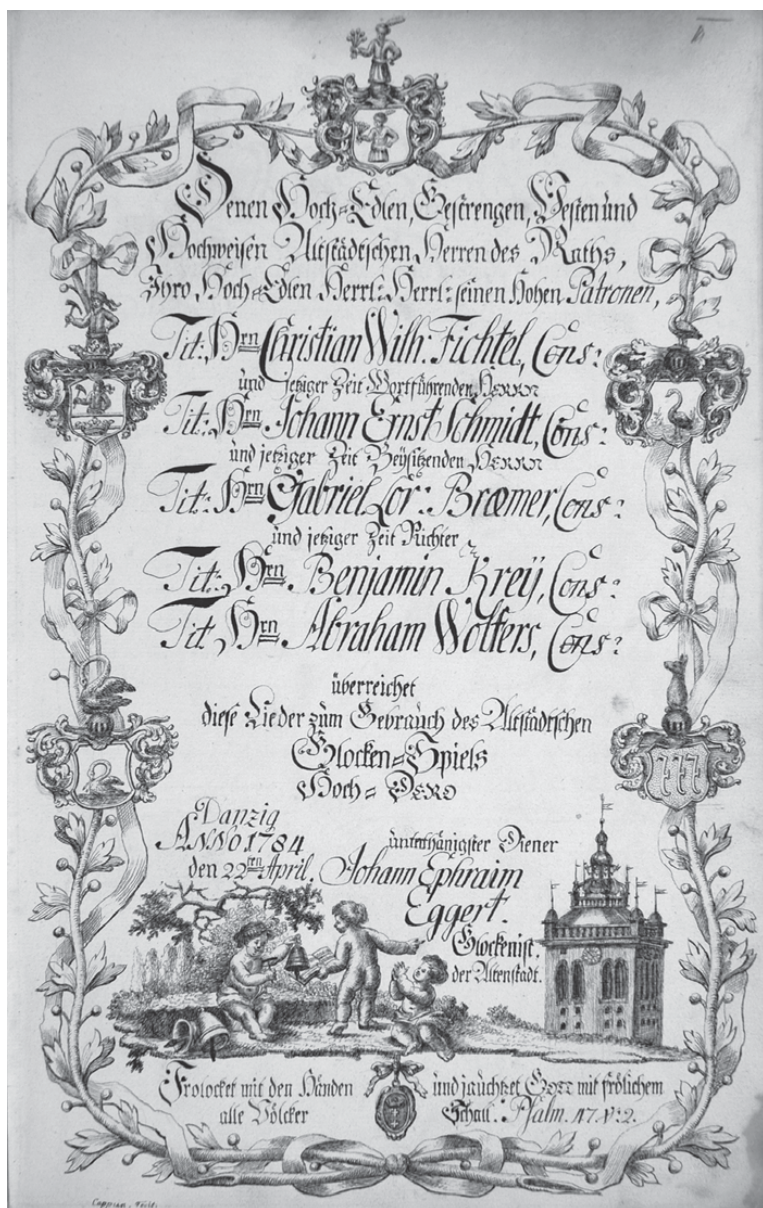 Denen Hoch-Edlen, Gestrengen, Vesten und
Hochweisen Altstädtschen Herren des Raths,
Ihro Hoch-Edlen Herrl: Herrl: seinen Hohen Patronen,
Tit: Hrn Christian Wilh: Fichtel, Cons:
und jetziger Zeit Wortführenden HERRN
Tit: Hrn Johann Ernst Schmidt, Cons:
und jetziger Zeit Beysitzenden HERRN
Tit: Hrn Gabriel Lor: Bræmer, Cons:
und jetziger Zeit Richter
Tit: Hrn Benjamin Kreÿ, Cons:
Tit Hrn Abraham Wolters, Cons:
überreichet
diese Lieder zum Gebrauch des Altstädtschen
Glocken-Spiels
Hoch-DERO
Danzig
ANNO 1784
den 22ten April.
unterthänigster Diener
Johann Ephraim
Eggert.
Glockenist.
der Altenstadt.
Frolocket mit den Händen
alle Völcker
und jauchtzet GOTT mit frölichem
Schall: Psalm. 47. v: 2.